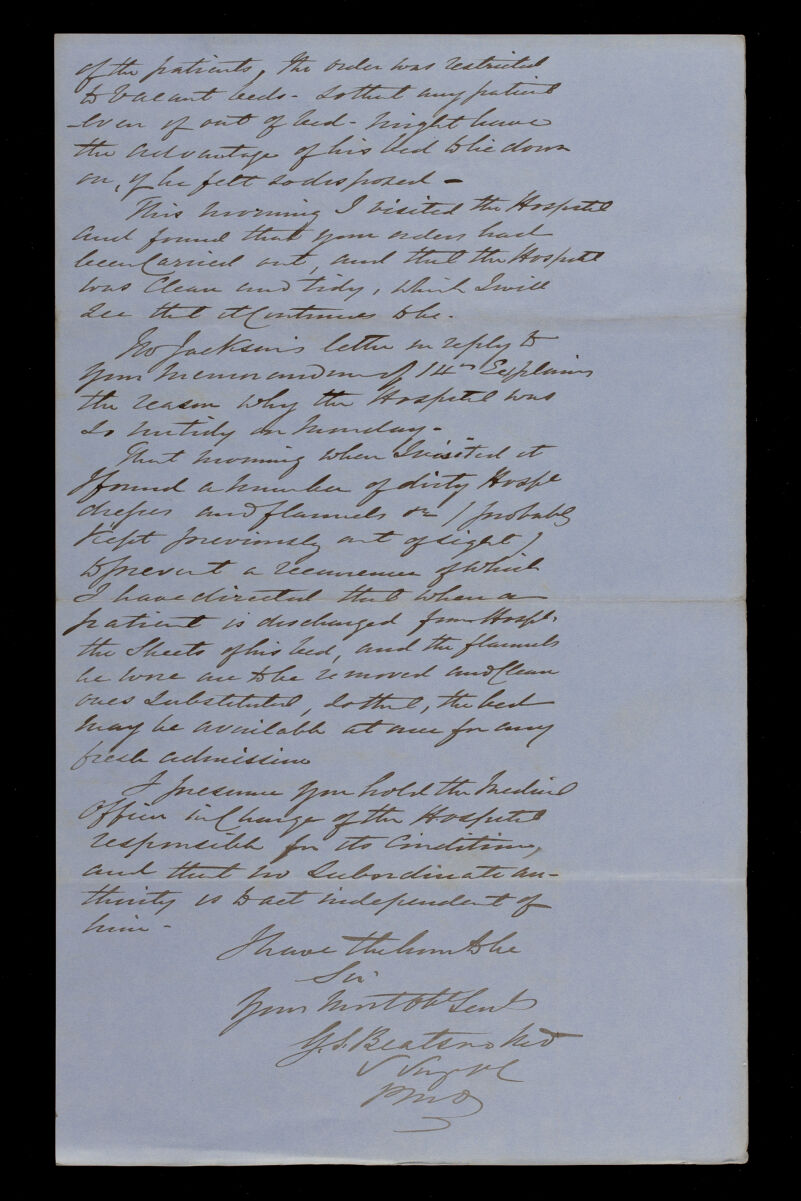 of the patients, the order was restricted
to vacant beds - so that any patient
- even if out of bed - might have
the advantage of his bed to lie down
on, if he felt so disposed -
This morning I visited the Hospital
and found that your orders had
been Carried out, and that the Hospital
was Clean and tidy, which I will
see that it Continues to be.
Mr Jackson's letter in reply to
your memorandum of 14th Explains
the reason why the Hospital was
so untidy on Monday -
That morning when I visited it
I found a number of dirty Hospl
dresses and flannels &c (probably
kept previously out of sight)
to prevent a recurrence of which
I have directed that when a
patient is discharged from Hospl.
the Sheets of his bed, and the flannels
he wore are to be removed and Clean
ones substituted, so that, the bed
may be available at once for any
fresh admission
I presume you hold the Medical
Officer in Charge of the Hospital
responsible for its Condition,
and that no Subordinate au-
thority is to act independent of
him -
I have the honr to be
Sir
Your Most Obt Servt
G. S. Beatson MD
PMO